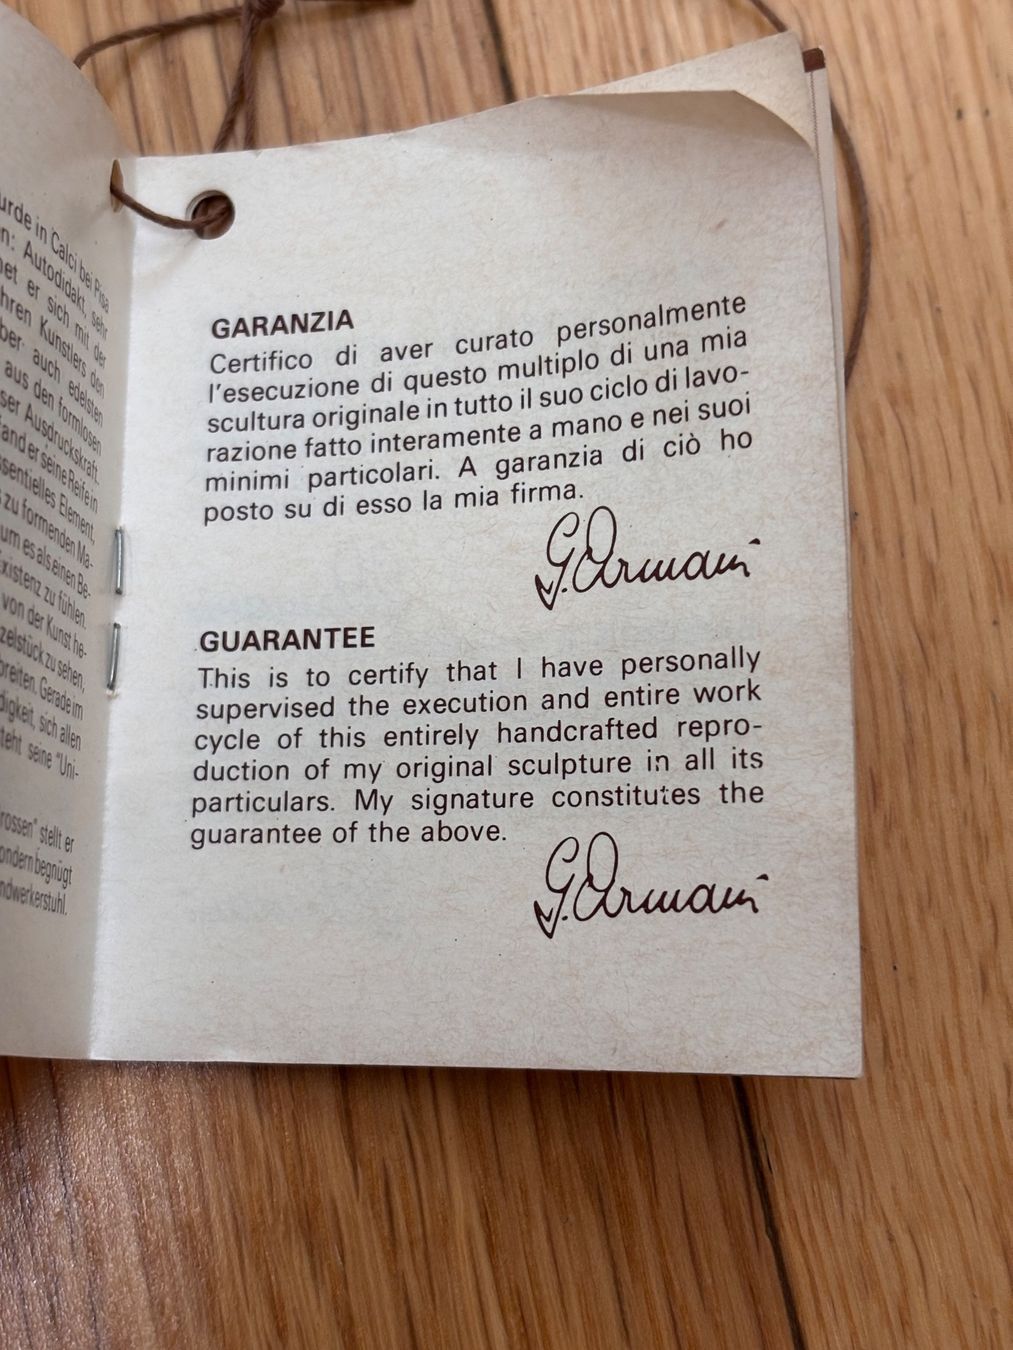 urde in Calci bei Pisa
n: Autodidakt, sehr
et er sich mit der
hren Künstlers den
ber auch edelsten
aus den formlosen
ser Ausdruckskraft.
fand er seine Reife in
ssentielles Element,
s zu formenden Ma-
um es als einen Be-
xistenz zu fühlen.
von der Kunst he-
zelstück zu sehen,
breiten. Gerade im
digkeit, sich allen
steht seine "Uni-
rossen" stellt er
ondern begnügt
ndwerkerstuhl.
GARANZIA
Certifico di aver curato personalmente
l'esecuzione di questo multiplo di una mia
scultura originale in tutto il suo ciclo di lavo-
razione fatto interamente a mano e nei suoi
minimi particolari. A garanzia di ciò ho
posto su di esso la mia firma.
G. Armani
GUARANTEE
This is to certify that I have personally
supervised the execution and entire work
cycle of this entirely handcrafted repro-
duction of my original sculpture in all its
particulars. My signature constitutes the
guarantee of the above.
G. Armani